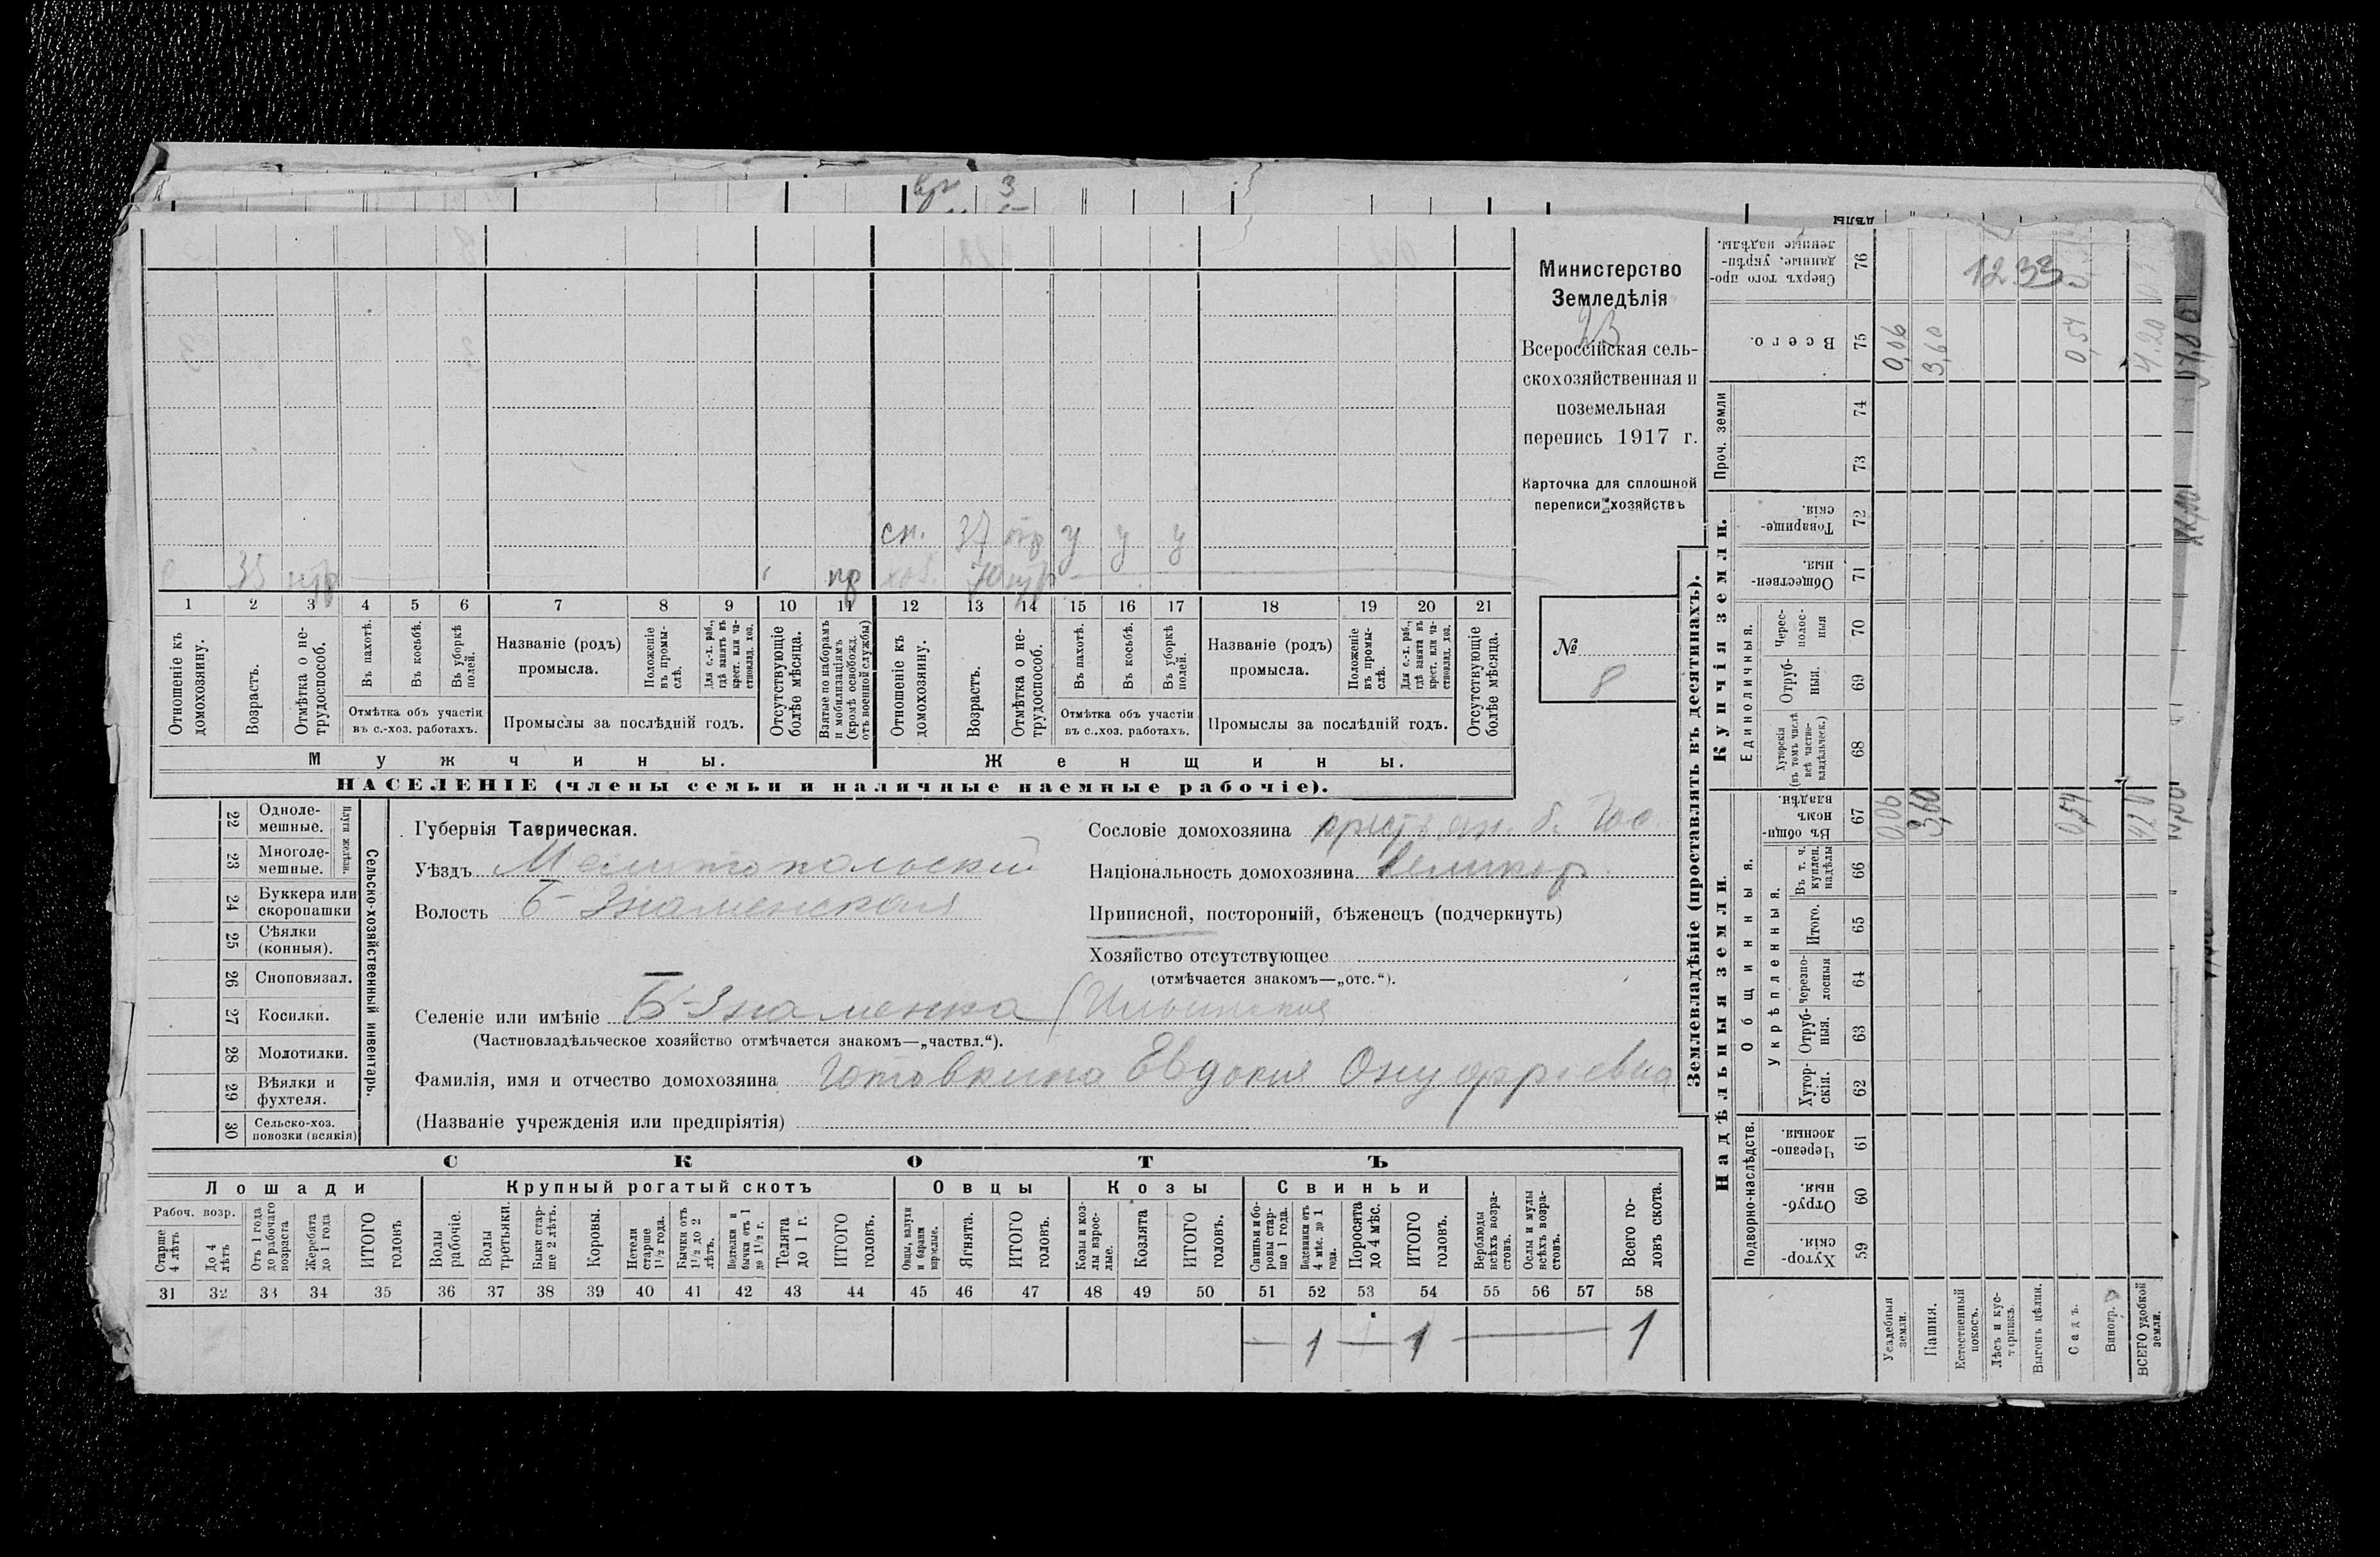 Министерство
Земледѣлія
23
Всероссійская сель-
скохозяйственная и
поземельная
перепись 1917 г.
Карточка для сплошной
переписи хозяйствъ
№
8
сн. 37 тр у у у
35 нтр пр хоз. 70 нтр
1 2 3 4 5 6 7 8 9 10 11 12 13 14 15 16 17 18 19 20 21
Отношеніе къ домохозяину.
Возрастъ.
Отмѣтка о нетрудоспособ.
Въ пахотѣ.
Въ косьбѣ.
Въ уборкѣ полей.
Отмѣтка объ участіи
въ с.-хоз. работахъ.
Названіе (родъ)
промысла.
Положеніе въ промыслѣ.
Для с.-х. раб., гдѣ занятъ въ крест. или частновлад. хоз.
Промыслы за послѣдній годъ.
Отсутствующіе болѣе мѣсяца.
Взятые по наборамъ и мобилизаціямъ (кромѣ освобожд. отъ военной службы)
Отношеніе къ домохозяину.
Возрастъ.
Отмѣтка о нетрудоспособ.
Въ пахотѣ.
Въ косьбѣ.
Въ уборкѣ полей.
Отмѣтка объ участіи
въ с.-хоз. работахъ.
Названіе (родъ)
промысла.
Положеніе въ промыслѣ.
Для с.-х. раб., гдѣ занятъ въ крест. или частновлад. хоз.
Промыслы за послѣдній годъ.
Отсутствующіе болѣе мѣсяца.
Мужчины. Женщины.
НАСЕЛЕНІЕ (члены семьи и наличные наемные рабочіе).
22 Одноле-
мешные.
23 Многоле-
мешные.
Плуги желѣзн.
24 Буккера или
скоропашки
25 Сѣялки
(конныя).
26 Сноповязал.
27 Косилки.
28 Молотилки.
29 Вѣялки и
фухтеля.
30 Сельско-хоз.
повозки (всякія)
Сельско-хозяйственный инвентарь.
Губернія Таврическая.
Уѣздъ Мелитопольскій
Волость Б-Знаменская
Сословіе домохозяина крестьян. б. Гос.
Національность домохозяина Великор.
Приписной, посторонній, бѣженецъ (подчеркнуть)
Хозяйство отсутствующее
(отмѣчается знакомъ—„отс.“).
Селеніе или имѣніе Б-Знаменка (Ильинская
(Частновладѣльческое хозяйство отмѣчается знакомъ—„частвл.“).
Фамилія, имя и отчество домохозяина Готовкина Евдокія Онуфріевна
(Названіе учрежденія или предпріятія)
СКОТЪ
Лошади Крупный рогатый скотъ Овцы Козы Свиньи
Рабоч. возр.
Старше 4 лѣтъ
До 4 лѣтъ
Отъ 1 года до рабочаго возраста
Жеребята до 1 года
ИТОГО головъ
Волы рабочіе.
Волы третьяки.
Быки старше 2 лѣтъ.
Коровы.
Нетели старше 1½ года.
Бычки отъ 1½ до 2 лѣтъ.
Подтелки и бычки отъ 1 до 1½ г.
Телята до 1 г.
ИТОГО головъ.
Овцы, валухи и бараны взрослые.
Ягнята.
ИТОГО головъ.
Козы и козлы взрослые.
Козлята
ИТОГО головъ.
Свиньи и боровы старше 1 года.
Подсвинки отъ 4 мѣс. до 1 года.
Поросята до 4 мѣс.
ИТОГО головъ.
Верблюды всѣхъ возрастовъ.
Ослы и мулы всѣхъ возрастовъ.
Всего головъ скота.
31 32 33 34 35 36 37 38 39 40 41 42 43 44 45 46 47 48 49 50 51 52 53 54 55 56 57 58
— 1 — 1 — 1
Землевладѣніе (проставлять въ десятинахъ).
Надѣльныя земли.
Купчія земли.
Проч. земли
Подворно-наслѣдств.
Общинныя.
Укрѣпленныя.
Единоличныя.
Сверхъ того проданные. укрѣпленные надѣлы. 76
1233
Всего. 75 0,06 3,60 0,54 4.20
74
73
Товарищескія. 72
Общественныя. 71
Чересполосныя 70
Отрубныя. 69
Хуторскія (въ томъ числѣ всѣ частновладѣльческ.) 68
Въ общинномъ владѣн. 67 0,06 3,60 0,54 4.20
Въ т. ч. куплен. надѣлы 66
Итого. 65
Черезполосныя 64
Отрубныя. 63
Хуторскія. 62
Черезполосныя. 61
Отрубныя. 60
Хуторскія. 59
Усадебныя земли.
Пашня.
Естественный покосъ.
Лѣсъ и кустарникъ.
Выгонъ цѣлин.
Садъ.
Виногр.
ВСЕГО удобной земли.